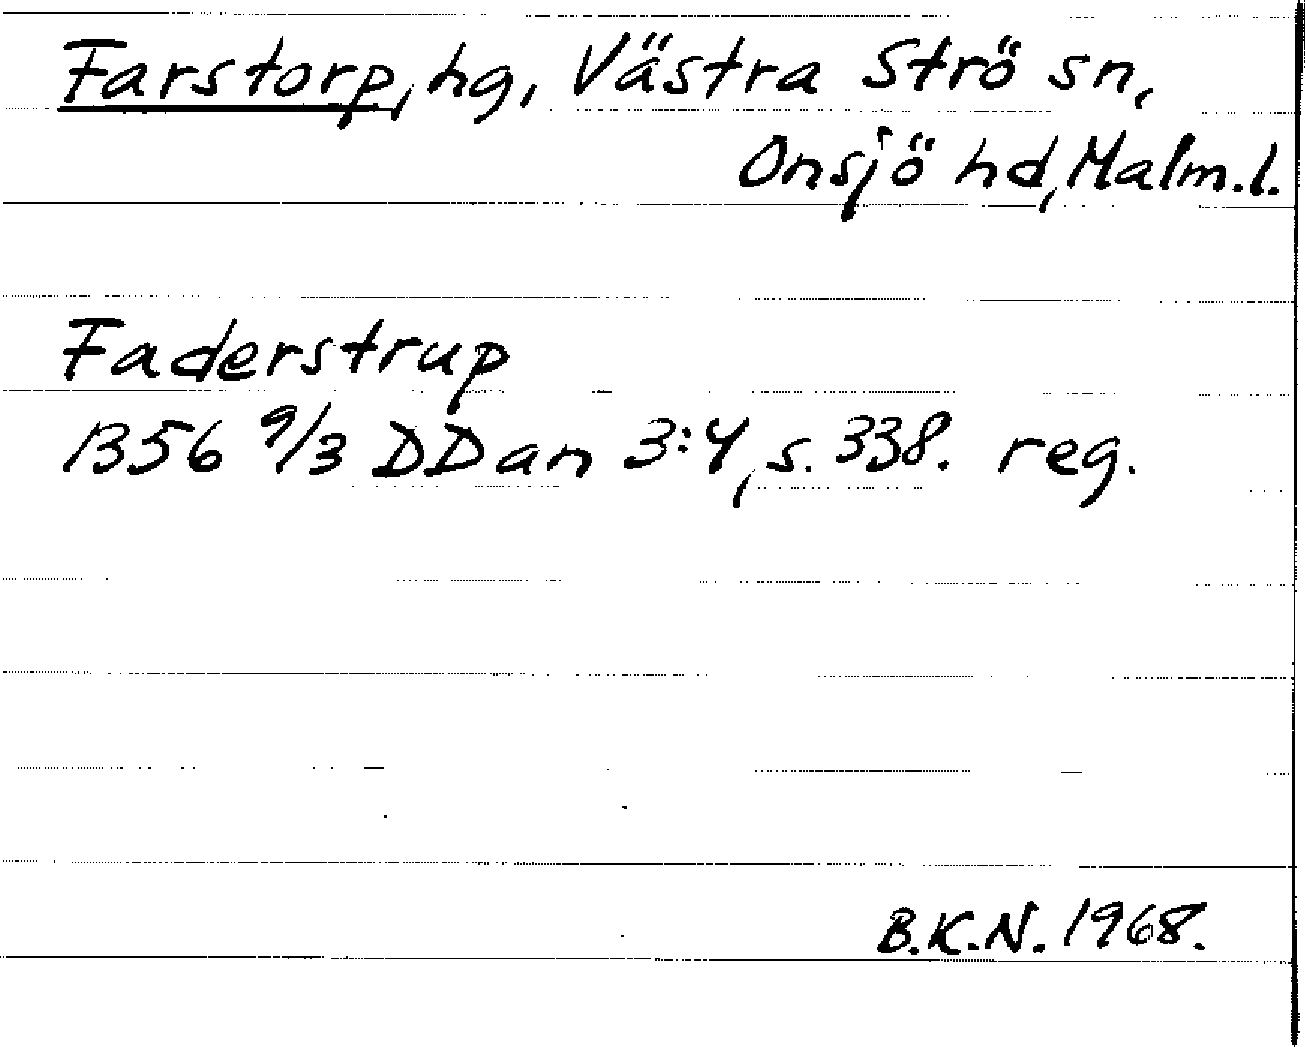 Farstorp, hg, Västra Strö sn,
Onsjö hd, Malm.l.
Faderstrup
1356 9/3 DDan 3:4, s. 338. reg.
B.K.N. 1968.